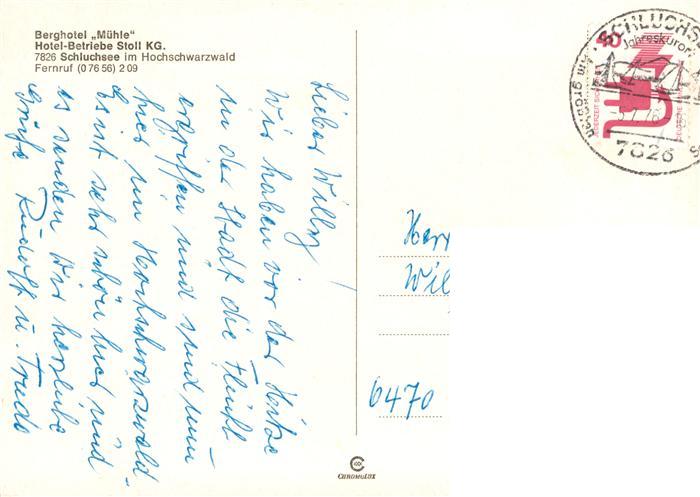 Berghotel „Mühle"
Hotel-Betriebe Stoll KG.
7826 Schluchsee im Hochschwarzwald
Fernruf (0 76 56) 2 09
Lieber Willy!
Wir haben vor der Hitze
in der Stadt die Flucht
ergriffen und sind nun
hier im Hochschwarzwald.
Es ist sehr schön hier und
es senden Dir herzliche
Grüße Rudolf u. Trude
SCHLUCHS
Jahreskuror
40
JEDERZEIT SICHERHEIT
DEUTSCHE
7826
Herr
Wil
6470
CHROMOLUX